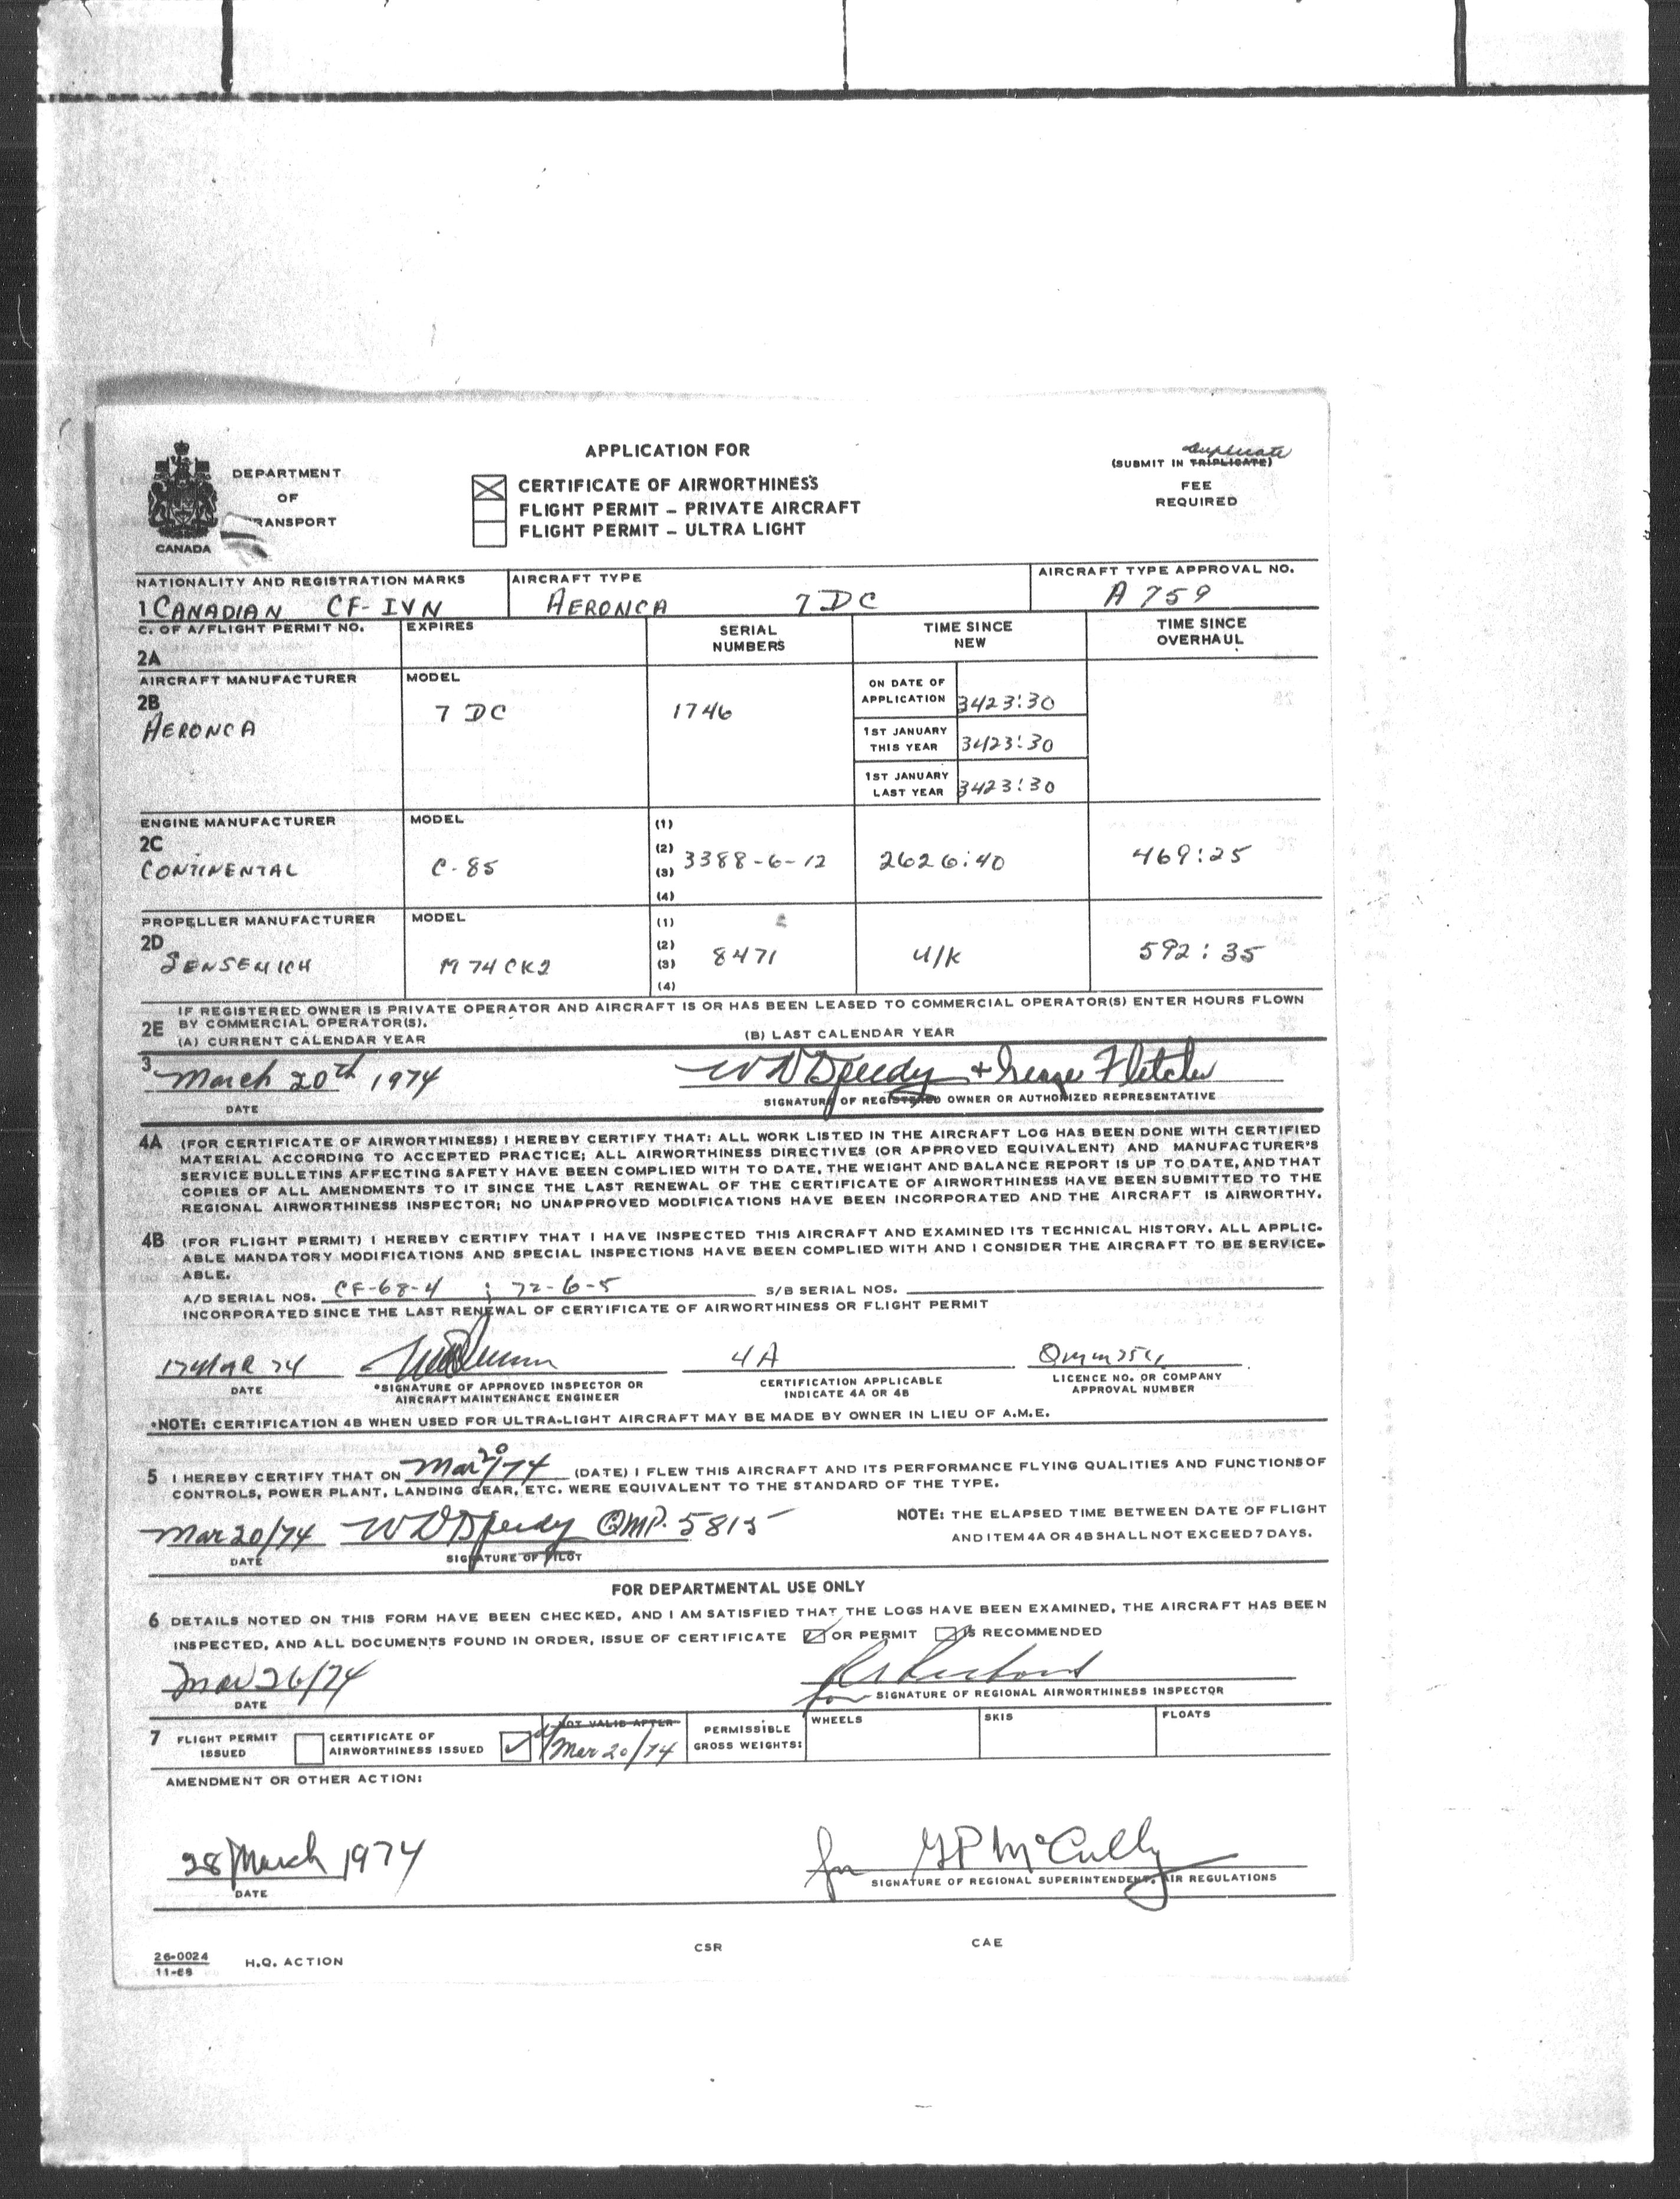 APPLICATION FOR
duplicate
(SUBMIT IN TRIPLICATE)
FEE
REQUIRED
DEPARTMENT
OF
RANSPORT
CANADA
CERTIFICATE OF AIRWORTHINESS
FLIGHT PERMIT – PRIVATE AIRCRAFT
FLIGHT PERMIT – ULTRA LIGHT
NATIONALITY AND REGISTRATION MARKS AIRCRAFT TYPE AIRCRAFT TYPE APPROVAL NO.
1 CANADIAN CF-IVN AERONCA 7DC A 759
C. OF A/FLIGHT PERMIT NO. EXPIRES SERIAL NUMBERS TIME SINCE NEW TIME SINCE OVERHAUL
2A
AIRCRAFT MANUFACTURER MODEL
2B
AERONCA 7 DC 1746
ON DATE OF APPLICATION 3423:30
1ST JANUARY THIS YEAR 3423:30
1ST JANUARY LAST YEAR 3423:30
ENGINE MANUFACTURER MODEL (1)
2C (2)
CONTINENTAL C-85 (3) 3388-6-12 2626:40 469:25
(4)
PROPELLER MANUFACTURER MODEL (1)
2D (2)
SENSENICH M74CK2 (3) 8471 U/K 592:35
(4)
2E IF REGISTERED OWNER IS PRIVATE OPERATOR AND AIRCRAFT IS OR HAS BEEN LEASED TO COMMERCIAL OPERATOR(S) ENTER HOURS FLOWN
BY COMMERCIAL OPERATOR(S).
(A) CURRENT CALENDAR YEAR (B) LAST CALENDAR YEAR
3 March 20th 1974 W D Speedy + George Fletcher
DATE SIGNATURE OF REGISTERED OWNER OR AUTHORIZED REPRESENTATIVE
4A (FOR CERTIFICATE OF AIRWORTHINESS) I HEREBY CERTIFY THAT: ALL WORK LISTED IN THE AIRCRAFT LOG HAS BEEN DONE WITH CERTIFIED
MATERIAL ACCORDING TO ACCEPTED PRACTICE; ALL AIRWORTHINESS DIRECTIVES (OR APPROVED EQUIVALENT) AND MANUFACTURER'S
SERVICE BULLETINS AFFECTING SAFETY HAVE BEEN COMPLIED WITH TO DATE, THE WEIGHT AND BALANCE REPORT IS UP TO DATE, AND THAT
COPIES OF ALL AMENDMENTS TO IT SINCE THE LAST RENEWAL OF THE CERTIFICATE OF AIRWORTHINESS HAVE BEEN SUBMITTED TO THE
REGIONAL AIRWORTHINESS INSPECTOR; NO UNAPPROVED MODIFICATIONS HAVE BEEN INCORPORATED AND THE AIRCRAFT IS AIRWORTHY.
4B (FOR FLIGHT PERMIT) I HEREBY CERTIFY THAT I HAVE INSPECTED THIS AIRCRAFT AND EXAMINED ITS TECHNICAL HISTORY. ALL APPLIC-
ABLE MANDATORY MODIFICATIONS AND SPECIAL INSPECTIONS HAVE BEEN COMPLIED WITH AND I CONSIDER THE AIRCRAFT TO BE SERVICE-
ABLE.
A/D SERIAL NOS. CF-68-4 ; 72-6-5 S/B SERIAL NOS.
INCORPORATED SINCE THE LAST RENEWAL OF CERTIFICATE OF AIRWORTHINESS OR FLIGHT PERMIT
17 MAR 74 4A
DATE *SIGNATURE OF APPROVED INSPECTOR OR AIRCRAFT MAINTENANCE ENGINEER CERTIFICATION APPLICABLE INDICATE 4A OR 4B LICENCE NO. OR COMPANY APPROVAL NUMBER
*NOTE: CERTIFICATION 4B WHEN USED FOR ULTRA-LIGHT AIRCRAFT MAY BE MADE BY OWNER IN LIEU OF A.M.E.
5 I HEREBY CERTIFY THAT ON Mar 20/74 (DATE) I FLEW THIS AIRCRAFT AND ITS PERFORMANCE FLYING QUALITIES AND FUNCTIONS OF
CONTROLS, POWER PLANT, LANDING GEAR, ETC. WERE EQUIVALENT TO THE STANDARD OF THE TYPE.
Mar 20/74 W D Speedy QMP. 5815
DATE SIGNATURE OF PILOT
NOTE: THE ELAPSED TIME BETWEEN DATE OF FLIGHT
AND ITEM 4A OR 4B SHALL NOT EXCEED 7 DAYS.
FOR DEPARTMENTAL USE ONLY
6 DETAILS NOTED ON THIS FORM HAVE BEEN CHECKED, AND I AM SATISFIED THAT THE LOGS HAVE BEEN EXAMINED, THE AIRCRAFT HAS BEEN
INSPECTED, AND ALL DOCUMENTS FOUND IN ORDER, ISSUE OF CERTIFICATE OR PERMIT IS RECOMMENDED
Mar 26/74 for
DATE SIGNATURE OF REGIONAL AIRWORTHINESS INSPECTOR
7 FLIGHT PERMIT ISSUED CERTIFICATE OF AIRWORTHINESS ISSUED NOT VALID AFTER Mar 20/74 PERMISSIBLE GROSS WEIGHTS: WHEELS SKIS FLOATS
AMENDMENT OR OTHER ACTION:
28 March 1974 for GP McCully
DATE SIGNATURE OF REGIONAL SUPERINTENDENT, AIR REGULATIONS
26-0024
11-68
H.Q. ACTION CSR CAE